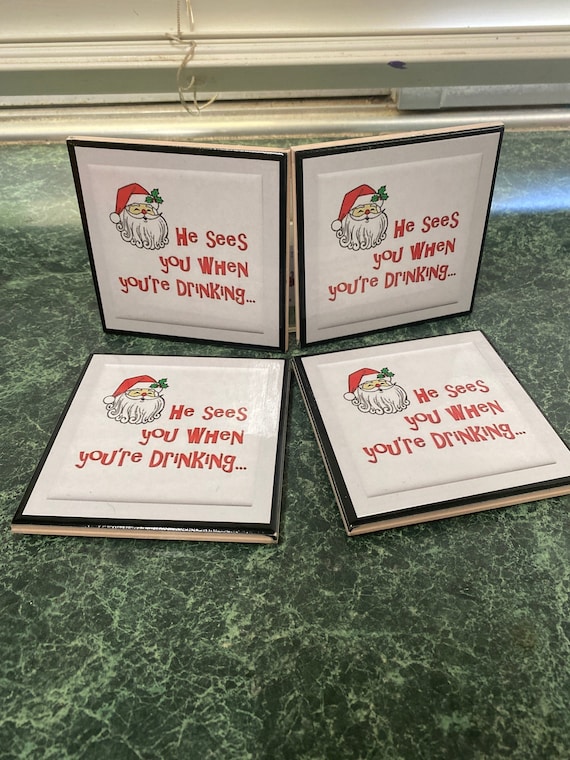 He sees
you when
you're Drinking...
He sees
you when
you're Drinking...
He sees
you when
you're Drinking...
He sees
you when
you're Drinking...